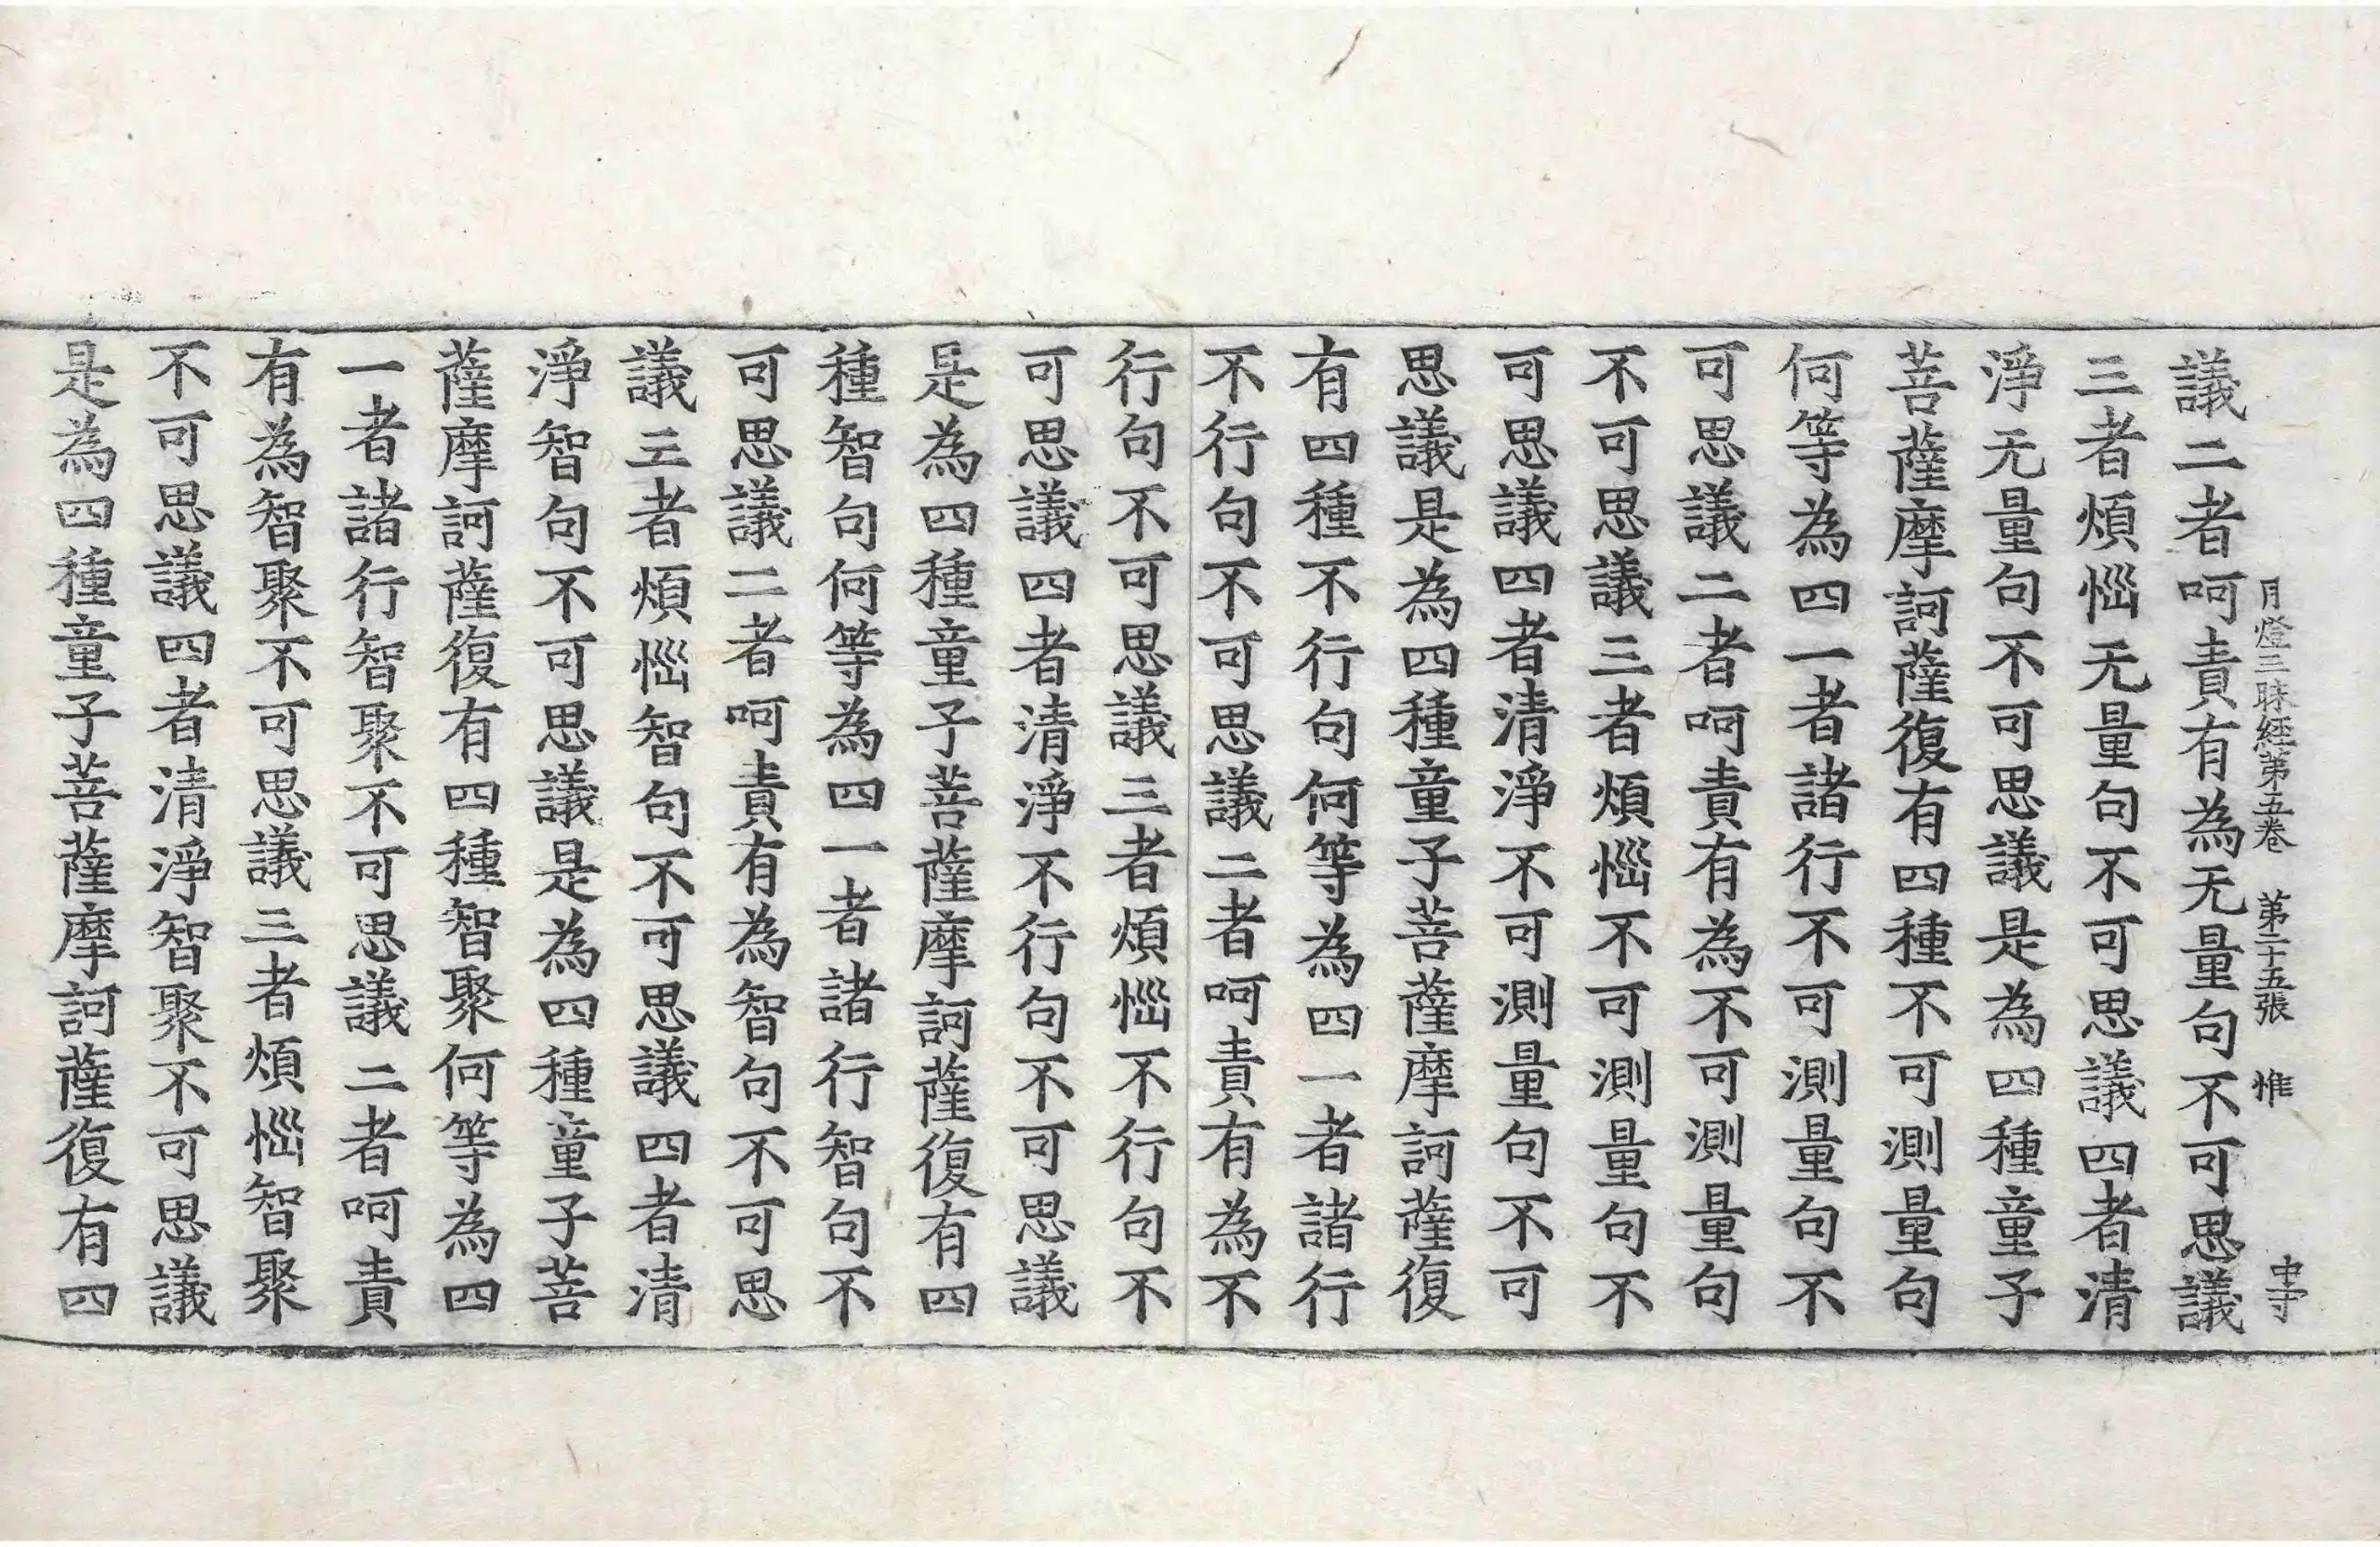 月燈三昧経苐五巻　苐二十五張　惟　中寺
議二者呵責有為无量句不可思議
三者煩惱无量句不可思議四者清
淨无量句不可思議是為四種童子
菩薩摩訶薩復有四種不可測量句
何等為四一者諸行不可測量句不
可思議二者呵責有為不可測量句
不可思議三者煩惱不可測量句不
可思議四者清淨不可測量句不可
思議是為四種童子菩薩摩訶薩復
有四種不行句何等為四一者諸行
不行句不可思議二者呵責有為不
行句不可思議三者煩惱不行句不
可思議四者清淨不行句不可思議
是為四種童子菩薩摩訶薩復有四
種智句何等為四一者諸行智句不
可思議二者呵責有為智句不可思
議三者煩惱智句不可思議四者清
淨智句不可思議是為四種童子菩
薩摩訶薩復有四種智聚何等為四
一者諸行智聚不可思議二者呵責
有為智聚不可思議三者煩惱智聚
不可思議四者清淨智聚不可思議
是為四種童子菩薩摩訶薩復有四